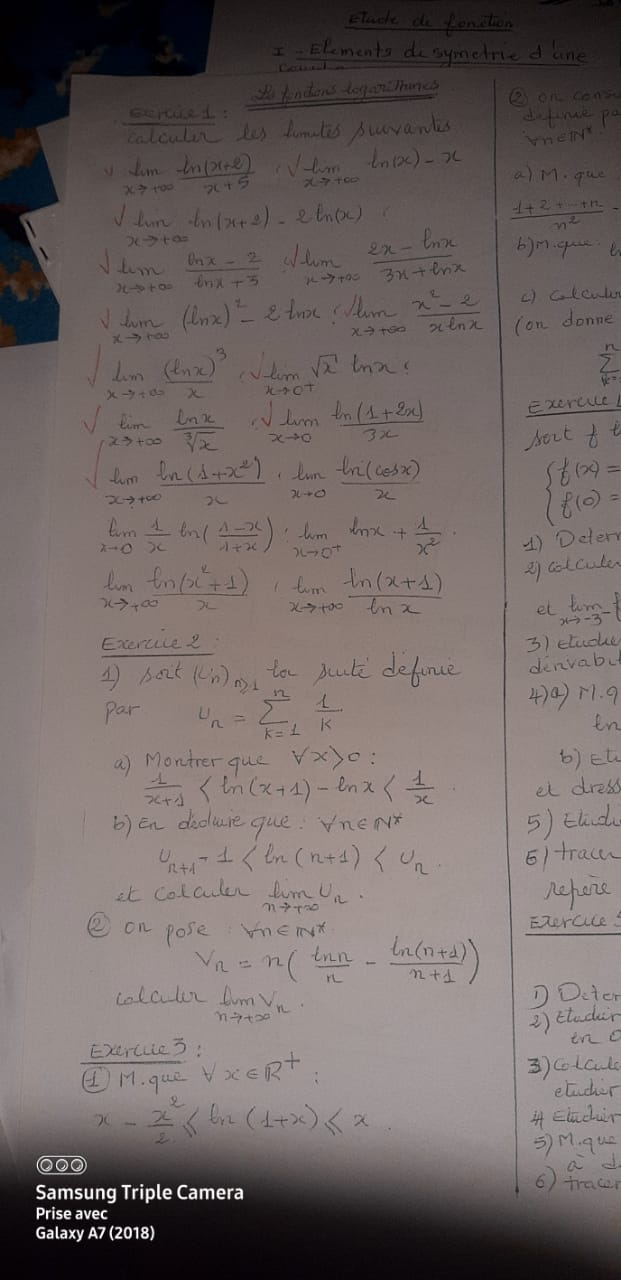 Etude de fonction
I - Elements de symetrie d'une
Les fonctions logarithmes
Exercice 1 :
calculer les limites suivantes
√ lim x→+∞ ln(x+2)/(x+5) , √ lim x→+∞ ln(x) - x
√ lim x→+∞ ln(x+2) - 2 ln(x) ;
√ lim x→+∞ (ln x - 2)/(ln x + 3) , √ lim x→+∞ (2x - ln x)/(3x + ln x)
√ lim x→+∞ (ln x)² - 2 ln x ; √ lim x→+∞ (x² - 2)/(x ln x)
√ lim x→+∞ (ln x)³/x , √ lim x→0⁺ √x ln x ;
√ lim x→+∞ ln x/∛x , √ lim x→0 ln(1+2x)/3x
√ lim x→+∞ ln(1+x²)/x , lim x→0 ln(cosx)/x
lim x→0 1/x ln((1-x)/(1+x)) ; lim x→0⁺ ln x + 1/x² .
lim x→+∞ ln(x²+1)/x , lim x→+∞ ln(x+1)/ln x
Exercice 2 :
1) soit (Un) n≥1 la suite définie
par Un = Σ k=1 n 1/k
a) Montrer que ∀x>0 :
1/(x+1) < ln(x+1) - ln x < 1/x
b) En déduire que : ∀n∈IN*
Un+1 - 1 < ln(n+1) < Un .
et calculer lim n→+∞ Un .
② on pose : ∀n∈IN*
Vn = n( ln n/n - ln(n+1)/(n+1) )
calculer lim n→+∞ Vn .
Exercice 3 :
① M.que ∀x∈R⁺ :
x - x²/2 ≤ ln(1+x) ≤ x .
② on cons
définie pa
∀n∈IN*
a) M.que
1+2+...+n/n²
b) M.que
c) Calculer
(on donne
n Σ k=
Exercice
soit f
{ f(x) =
{ f(0) =
1) Determ
2) calculer
et lim x→-3
3) Etudie
dérivabil
4)a) M.q
ln
b) Etu
et dress
5) Etudi
6) tracer
repère
Exercice 5
1) Deter
2) Etudier
en 0
3) Calcule
etudier
4) Etudier
5) M.que
à d
6) tracer
Samsung Triple Camera
Prise avec
Galaxy A7 (2018)